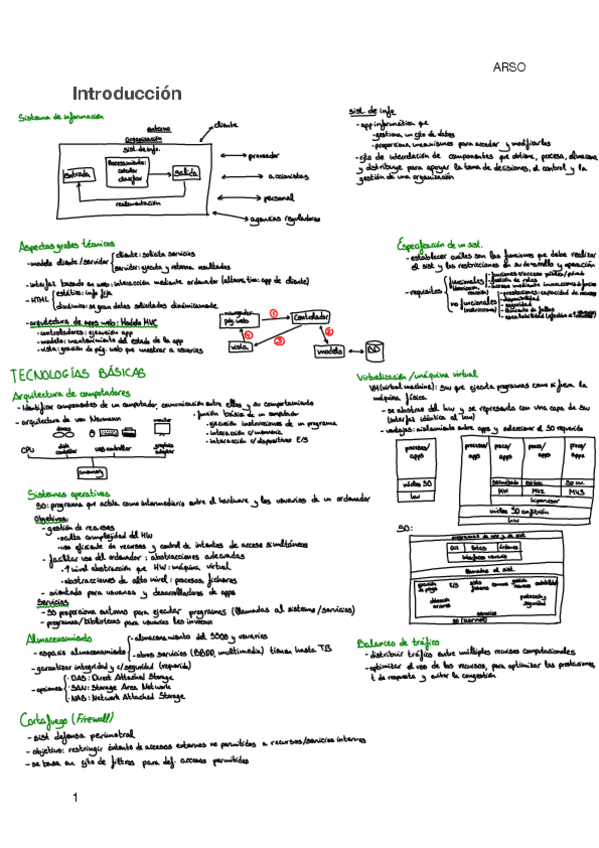 ARSO
Introducción
Sistema de información
entorno
organización
sist. de info.
entrada
Procesamiento:
calcular
clasificar
salida
realimentación
cliente
proveedor
accionistas
personal
agencias reguladoras
sist. de info
- app informática que
- gestiona un cjto de datos
- proporciona mecanismos para acceder y modificarlos
- cjto de interrelación de componentes que obtiene, procesa, almacena
y distribuye para apoyar la toma de decisiones, el control y la
gestión de una organización
Aspectos grales técnicos
- modelo cliente/servidor
cliente: solicita servicios
servidor: ejecuta y retorna resultados
- interfaz basado en web: interacción mediante ordenador (alternativa: app de cliente)
- HTML
estático: info fija
dinámico: se gran datos solicitados dinámicamente
- arquitectura de apps web: Modelo MVC
- controladores: ejecución app
- modelo: mantenimiento del estado de la app
- vista: gración de pág. web que mostrar a usuarios
navegador
pág. web
1
controlador
4
3
2
vista
modelo
BD
Especificación de un sist.
- establecer cuáles son las funciones que debe realizar
el sist y las restricciones en su desarrollo y operación
- requisitos
funcionales
- funciones c/acceso público/privado
- gestión de roles
no funcionales
(restricciones)
- prestaciones: capacidad de proceso
- disponibilidad
- seguridad
- tolerancia de fallos
TECNOLOGÍAS BÁSICAS
Arquitectura de computadores
- Identificar componentes de un computador, comunicación entre ellos y su comportamiento
- arquitectura de von Neumann
CPU
disk
controller
USB controller
graphics
adapter
monitor
memory
- función básica de un computador
- ejecución instrucciones de un programa
- interacción c/memoria
- interacción c/dispositivos E/S
Virtualización / máquina virtual
VM (virtual machine): sw que ejecuta programas como si fuera la
máquina física.
- se abstrae del hw y se representa con una capa de sw
(interfaz idéntica al hw)
- ventajas: aislamiento entre apps y seleccionar el SO requerido
procesos/
apps
núcleo SO
hw
procesos/
apps
procs/
apps
procs/
apps
MV1
MV2
MV3
hipervisor
núcleo SO anfitrión
hw
Sistemas operativos
SO: programa que actúa como intermediario entre el hardware y los usuarios de un ordenador
Objetivos:
- gestión de recursos
- oculta complejidad del HW
- uso eficiente de recursos y control de intentos de acceso simultáneos
- facilitar uso del ordenador: abstracciones adecuadas
- ↑ nivel abstracción que HW: máquina virtual
- abstracciones de alto nivel: procesos, ficheros
- orientado para usuarios y desarrolladores de apps
Servicios
- SO proporciona entorno para ejecutar programas (llamadas al sistema/servicios)
- programas/bibliotecas para usuarios les invocan
SO:
GUI
interfaces usuario
llamadas al sist.
E/S
servicios
SO (kernel)
Almacenamiento
- espacio almacenamiento
- almacenamiento del SSOO y usuarios
- otros servicios (BBDD, multimedia) tienen hasta TB
- garantizar integridad y c/seguridad (requerida)
- opciones
- DAS: Direct Attached Storage
- SAN: Storage Area Network
- NAS: Network Attached Storage
Balanceo de tráfico
- distribuir tráfico entre múltiples recursos computacionales
- optimizar el uso de los recursos, para optimizar las prestaciones,
t de respuesta y evitar la congestión
Cortafuego (Firewall)
- sist defensa perimetral
- objetivo: restringir intento de accesos externos no permitidos a recursos/servicios internos
- se basa en cjto de filtros para def. accesos permitidos
1